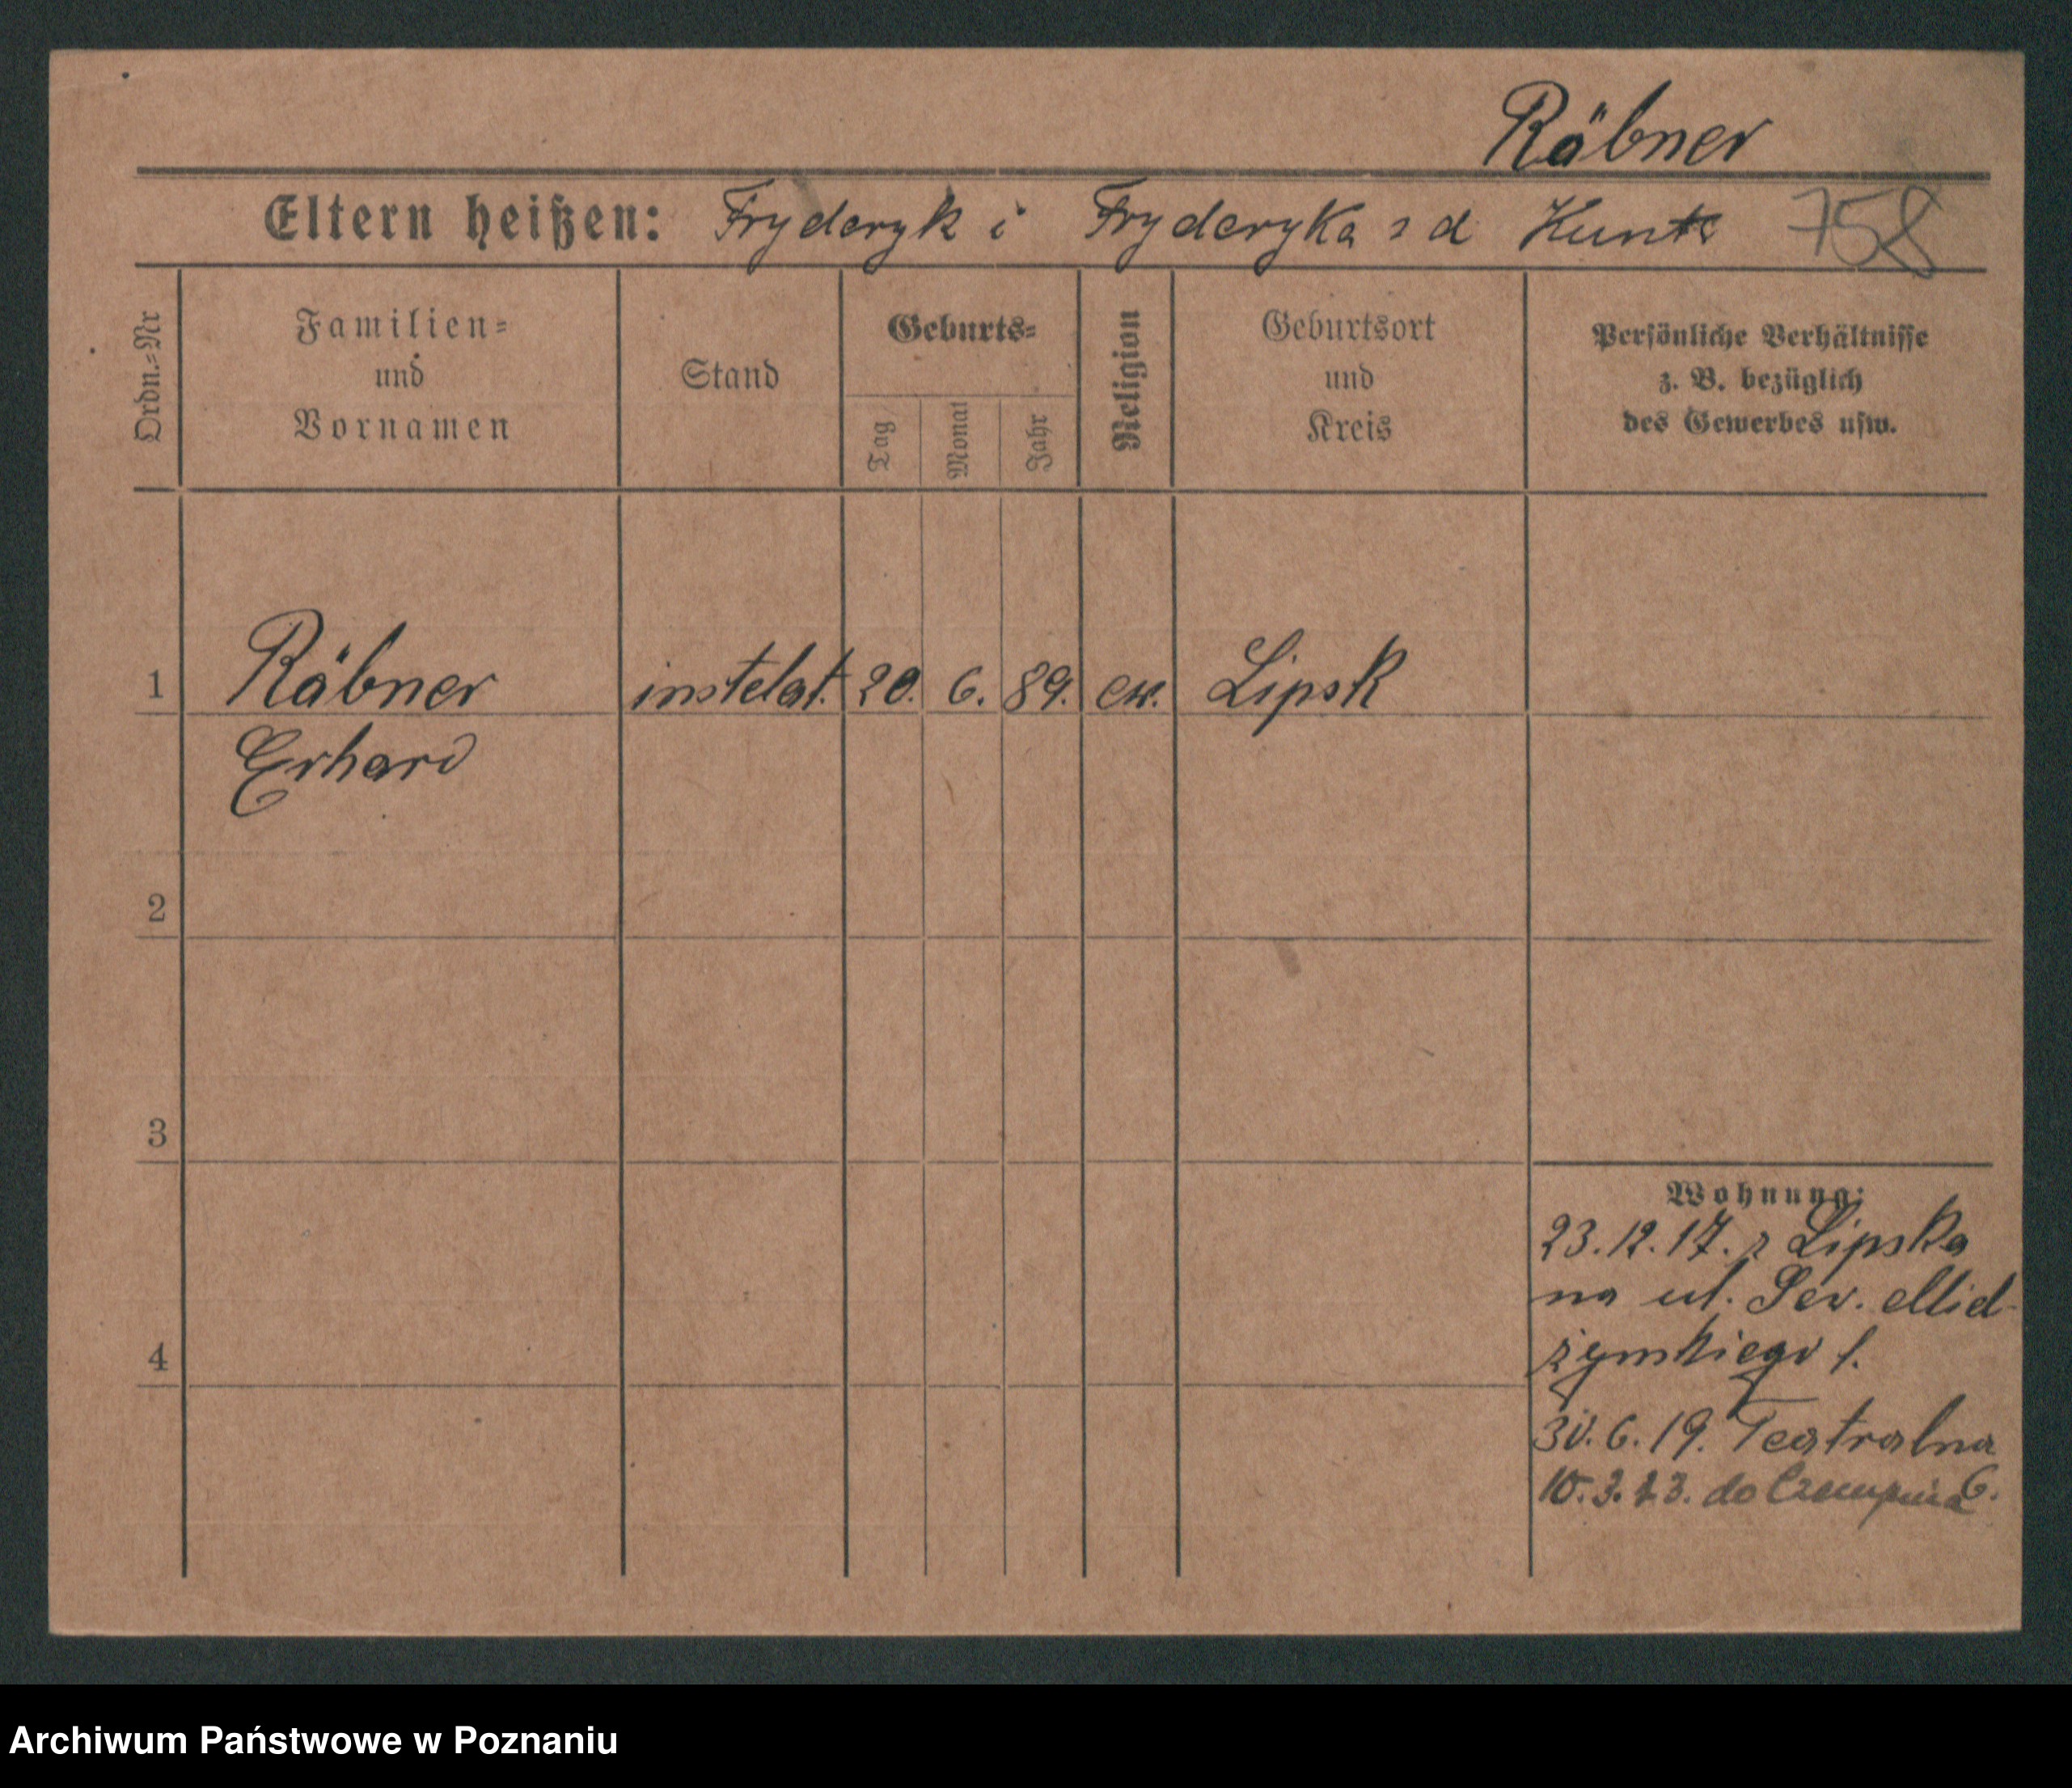 Räbner
Eltern heißen: Fryderyk i Fryderyka z d Kuntz 758
Ordn.=Nr
Familien=
und
Vornamen
Stand
Geburts=
Tag
Monat
Jahr
Religion
Geburtsort
und
Kreis
Persönliche Verhältnisse
z. B. bezüglich
des Gewerbes usw.
1 Räbner instelat. 20. 6. 89. ew. Lipsk
Erhard
2
3
4
Wohnung:
23.12.17. z Lipska
na ul. Sew. Miel-
żyńskiego 1.
30.6.19. Teatralna
6.
10.3.23. do Czempinia
Archiwum Państwowe w Poznaniu